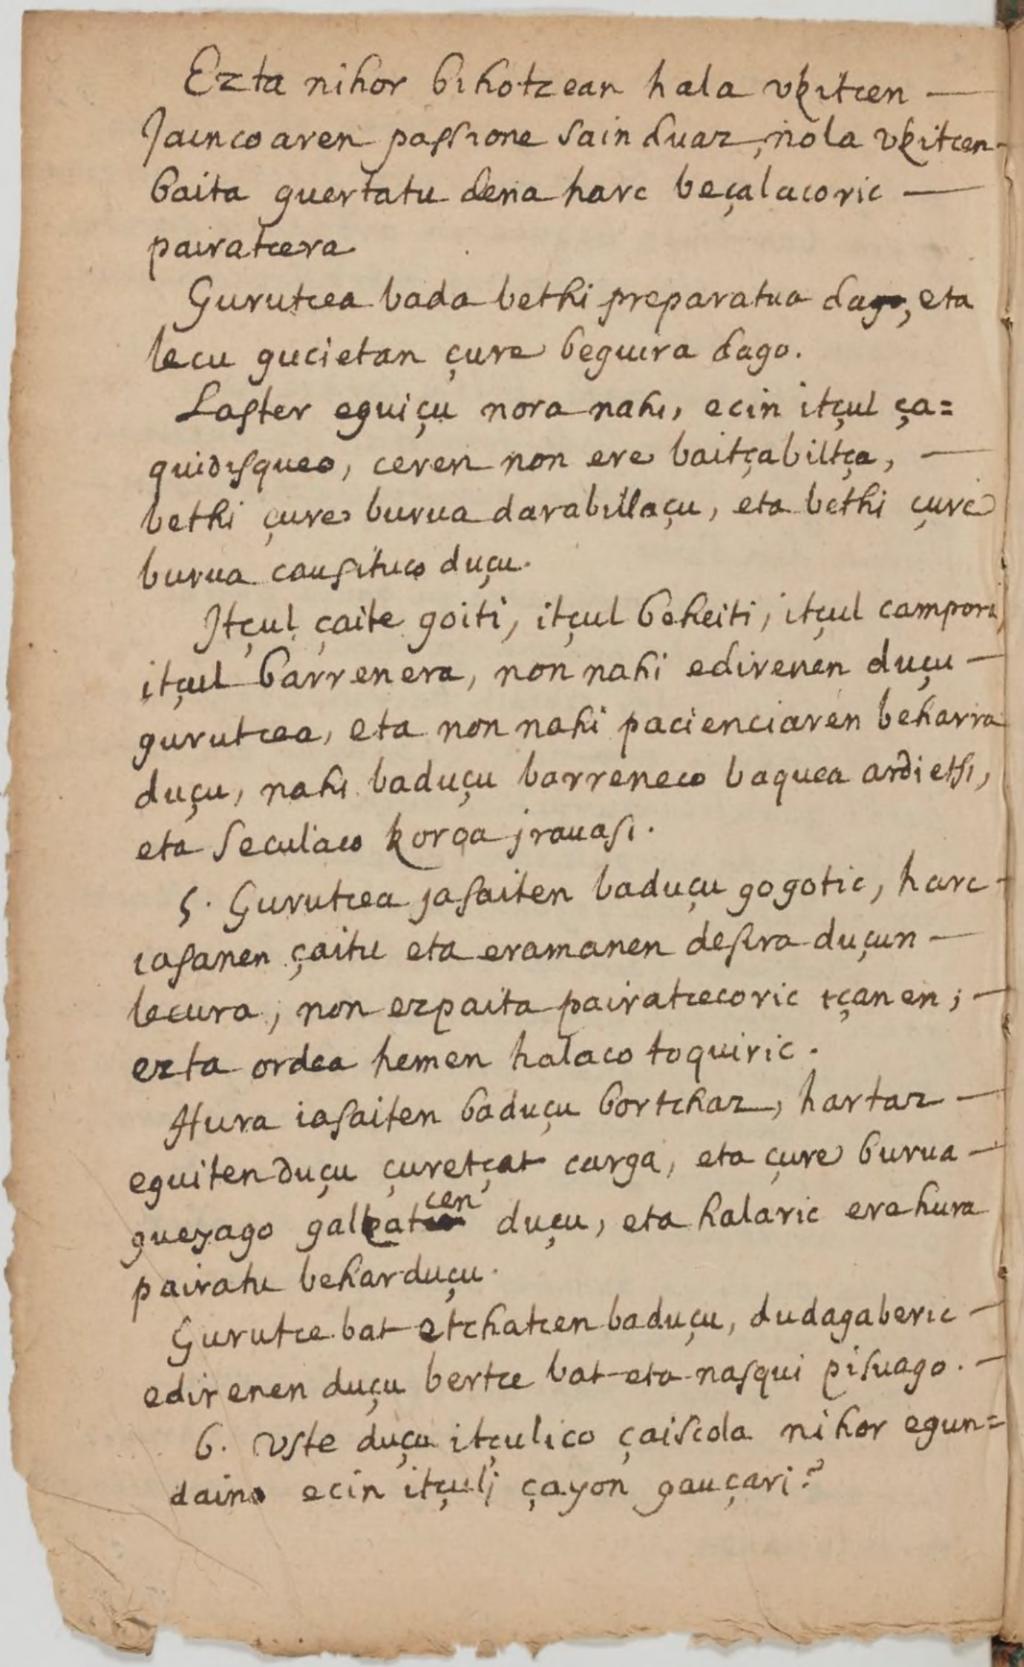 Ezta nihor bihotzean hala vkitcen —
Jaincoaren passione sainduaz, nola vkitcen
baita guertatu dena harc beçalacoric —
pairatcera
Gurutcea bada bethi preparatua dago, eta
lecu gucietan çure beguira dago.
Laster eguiçu nora nahi, ecin itçul ça=
quidisqueo, ceren non ere baitçabiltça, —
bethi çure burua darabillaçu, eta bethi çure
burua causituco duçu.
Itçul çaite goiti, itçul beheiti, itçul campora,
itçul barrenera, non nahi edirenen duçu —
gurutcea, eta non nahi pacienciaren beharra
duçu, nahi baduçu barreneco baquea ardietsi,
eta seculaco koroa jrauasi.
5. Gurutcea jasaiten baduçu gogotic, harc
iasanen çaitu eta eramanen desira duçun —
lecura, non ezpaita pairatcecoric içanen; —
ezta ordea hemen halaco toquiric.
Hura iasaiten baduçu bortchaz, hartaz —
eguiten duçu çuretçat carga, eta çure burua —
gueyago galkatcen duçu, eta halaric ere hura
pairatu behar duçu.
Gurutce bat etchatcen baduçu, dudagaberic —
edirenen duçu bertce bat eta nasqui pisuago. —
6. Vste duçu itçulico çaiscola nihor egun=
daino ecin itçulj çayon gauçari?